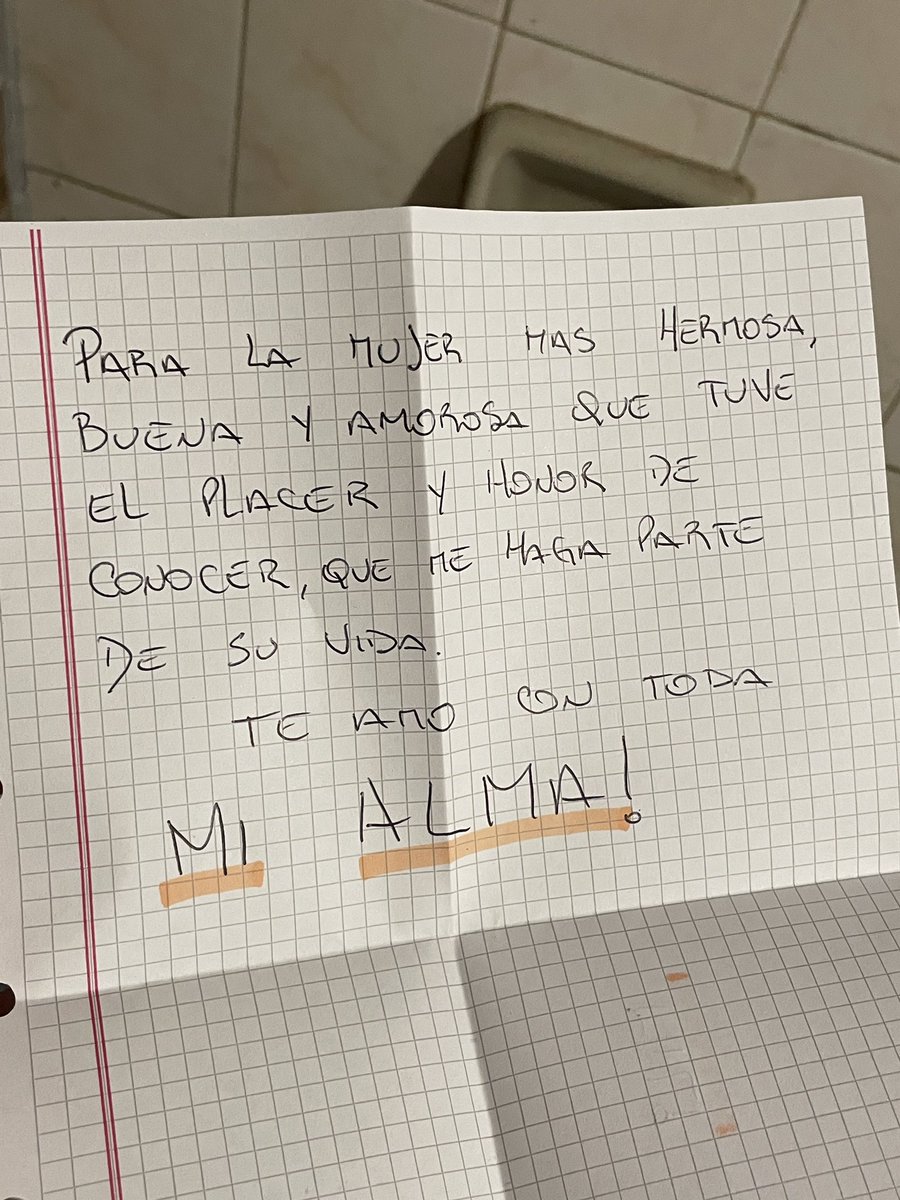 PARA LA MUJER MAS HERMOSA,
BUENA Y AMOROSA QUE TUVE
EL PLACER Y HONOR DE
CONOCER, QUE ME HAGA PARTE
DE SU VIDA.
TE AMO CON TODA
MI ALMA!